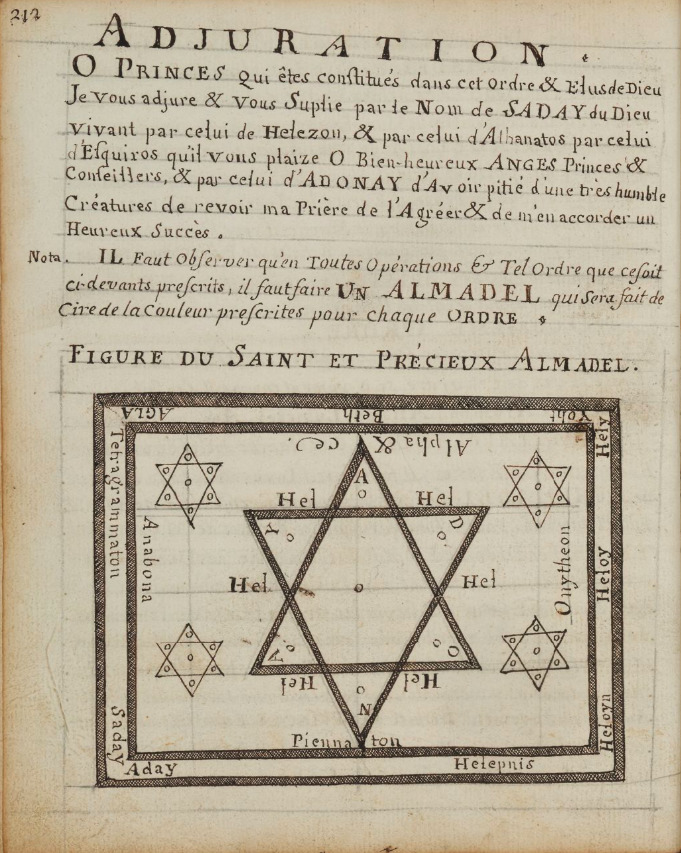 212
ADJURATION.
O PRINCES qui êtes constitués dans cet Ordre & Elus de Dieu
Je vous adjure & vous Suplie par le Nom de SADAY du Dieu
vivant par celui de Helezon, & par celui d'Alhanatos par celui
d'Esquiros qu'il vous plaize O Bien-heureux ANGES Princes &
Conseillers, & par celui d'ADONAY d'Avoir pitié d'une très humble
Créatures de revoir ma Prière de l'Agréer & de m'en accorder un
Heureux Succès.
Nota. IL Faut Observer qu'en Toutes Opérations & Tel Ordre que ce soit
ci-devants prescrits, il faut faire UN ALMADEL qui sera fait de
Cire de la Couleur prescrites pour chaque ORDRE
FIGURE DU SAINT ET PRÉCIEUX ALMADEL.
AGLA Beth Yoht
Hely
Alpha & ce.
Tetragrammaton
Anabona
A
Hel Hel
Y D
Hel Hel
Onytheon
Heloy
A O
Hel Hel
N
Piennaton
Saday
Heloyn
Aday Helepnis